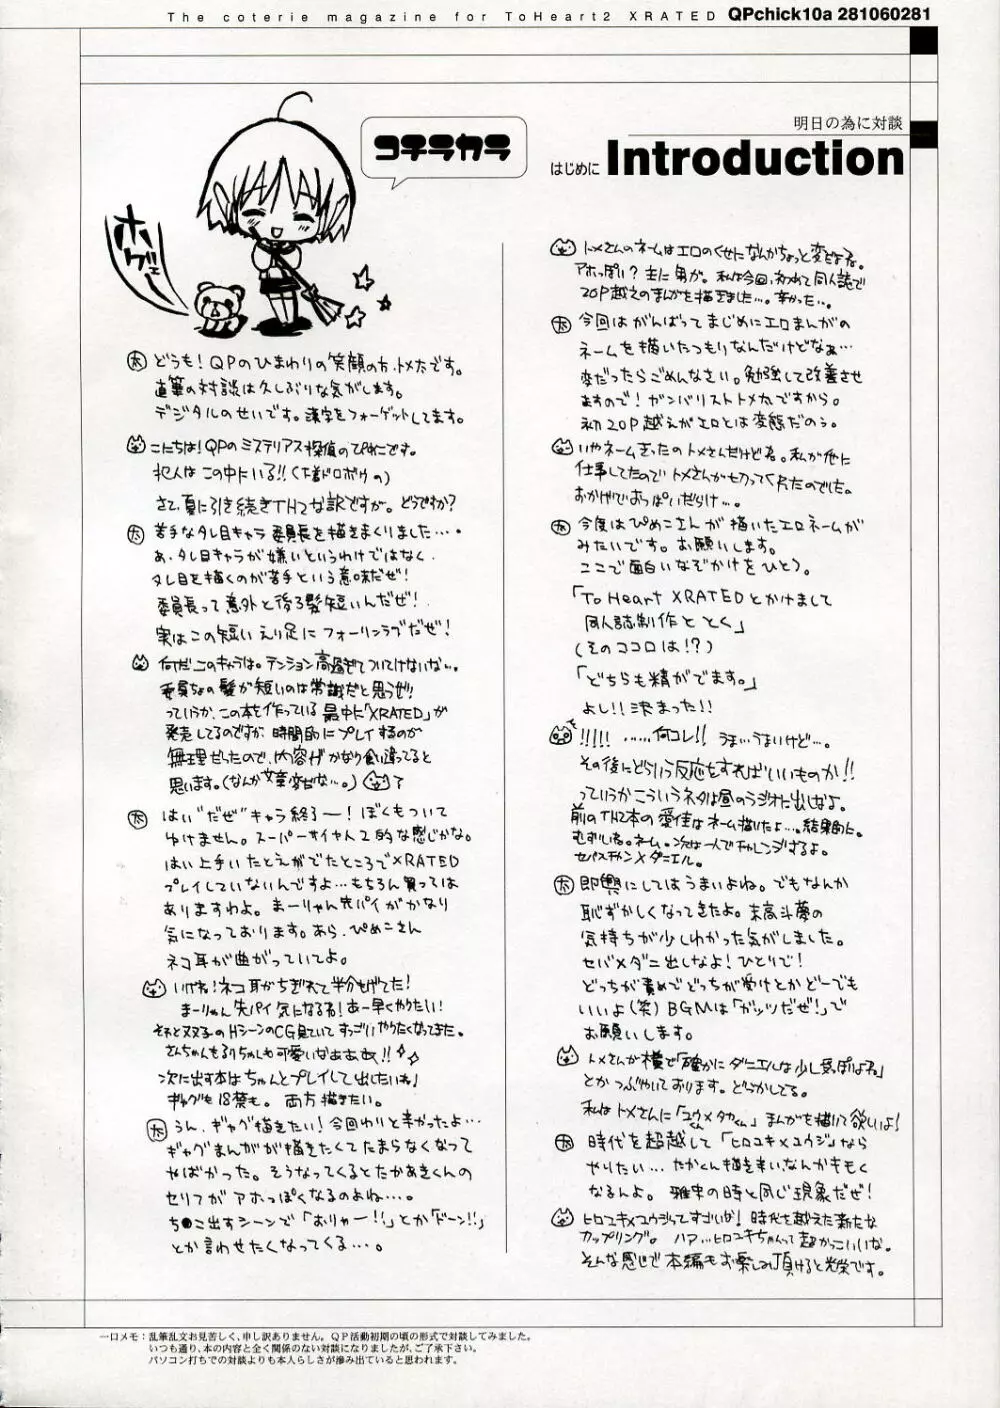 The coterie magazine for ToHeart2 XRATED QPchick10a 281060281
明日の為に対談
はじめに Introduction
コチラカラ
ホゲェー
どうも！QPのひまわりの笑顔の方、トメ太です。
直筆の対談は久しぶりな気がします。
デジタルのせいです。漢字をフォーゲットしてます。
こにちは！QPのミステリアス探偵のぴめこです。
犯人はこの中にいる!!(下着ドロボウの)
さて、夏に引き続きTH2な訳ですが。どうですか？
太 苦手なタレ目キャラ委員長を描きまくりました・・・・
あ、タレ目キャラが嫌いというわけではなく、
タレ目を描くのが苦手という意味だぜ！
委員長って意外と後ろ髪短いんだぜ！
実はこの短いえり足にフォーリンラブだぜ！
何だこのキャラは。テンション高過ぎてついてけないな…。
委員ちょの髪が短いのは常識だと思うぜ!!
っていうか、この本を作っている最中に「XRATED」が
発売してるのですが時間的にプレイするのが
無理だったので、内容がかなり食い違ってると
思います。(なんか文章変だな…。)？
太 はい"だぜ"キャラ終了ー！ぼくもついて
ゆけません。スーパーサイヤ人2的な感じかな。
はい上手いたとえがでたところでXRATED
プレイしていないんですよ…もちろん買っては
ありますわよ。まーりゃん先パイがかなり
気になっております。あら、ぴめこさん
ネコ耳が曲がっていてよ。
いけね！ネコ耳がちぎれて半分もげてた！
まーりゃん先パイ気になるね！あー早くやりたい！
それと双子のHシーンのCG見ていてすっごいやりたくなってきた。
さんちゃんもるりちゃんも可愛いなぁぁぁぁ!!
次に出す本はちゃんとプレイして出したいね」
ギャグも18禁も。両方描きたい。
太 うん、ギャグ描きたい！今回わりと辛かったよ…
ギャグまんがが描きたくてたまらなくなって
やばかった。そうなってくるとたかあきくんの
セリフがアホっぽくなるのよね…。
ち●こ出すシーンで「おりゃー!!」とか「ドーン!!」
とか言わせたくなってくる…。
トメさんのネームはエロのくせになんかちょっと変だよね。
アホっぽい？主に男が。私は今回、初めて同人誌で
20P越えのまんがを描きました…。辛かった…。
太 今回はがんばってまじめにエロまんがの
ネームを描いたつもりなんだけどなぁ…
変だったらごめんなさい。勉強して改善させ
ますので！ガンバリストトメ太ですから。
初20P越えがエロとは変態だのぅ。
いやネームきったのトメさんだけどね。私が他に
仕事してたのでトメさんが切ってくれたのでした。
おかげでおっぱいだらけ…。
太 今度はぴめこさんが描いたエロネームが
みたいです。お願いします。
ここで面白いなぞかけをひとつ。
「To Heart XRATEDとかけまして
同人誌制作ととく」
(そのココロは!?)
「どちらも精がでます。」
よし!!決まった!!
!!!!! ……何コレ!! うま…うまいけど…。
その後にどういう反応をすればいいものか!!
っていうかこういうネタは昼のラジオに出しなよ。
前のTH2本の愛佳はネーム描いたよ…。結果的に。
むずいね。ネーム。次は一人でチャレンジするよ。
セバスチャン×ダニエル。
太 即興にしてはうまいよね。でもなんか
恥ずかしくなってきたよ。末高斗夢の
気持ちが少しわかった気がしました。
セバ×ダニ出しなよ！ひとりで！
どっちが責めでどっちが受けとかどーでも
いいよ(笑)BGMは「ガッツだぜ!」で
お願いします。
トメさんが横で「確かにダニエルは少し受っぽいよね」
とかつぶやいております。どうかしてる。
私はトメさんに「ユウ×タカくん」まんがを描いて欲しいよ！
太 時代を超越して「ヒロユキ×ユウジ」なら
やりたい…たかくん描き辛い、なんかキモく
なるんよ。雅史の時と同じ現象だぜ！
ヒロユキ×ユウジってすごいな！時代を越えた新たな
カップリング。ハァ…ヒロユキちゃんって超かっこいいな。
そんな感じで本編もお楽しみ頂けると光栄です。
一口メモ：乱筆乱文お見苦しく、申し訳ありません。QP活動初期の頃の形式で対談してみました。
いつも通り、本の内容と全く関係のない対談になりましたが、ご了承下さい。
パソコン打ちでの対談よりも本人らしさが滲み出ていると思われます。